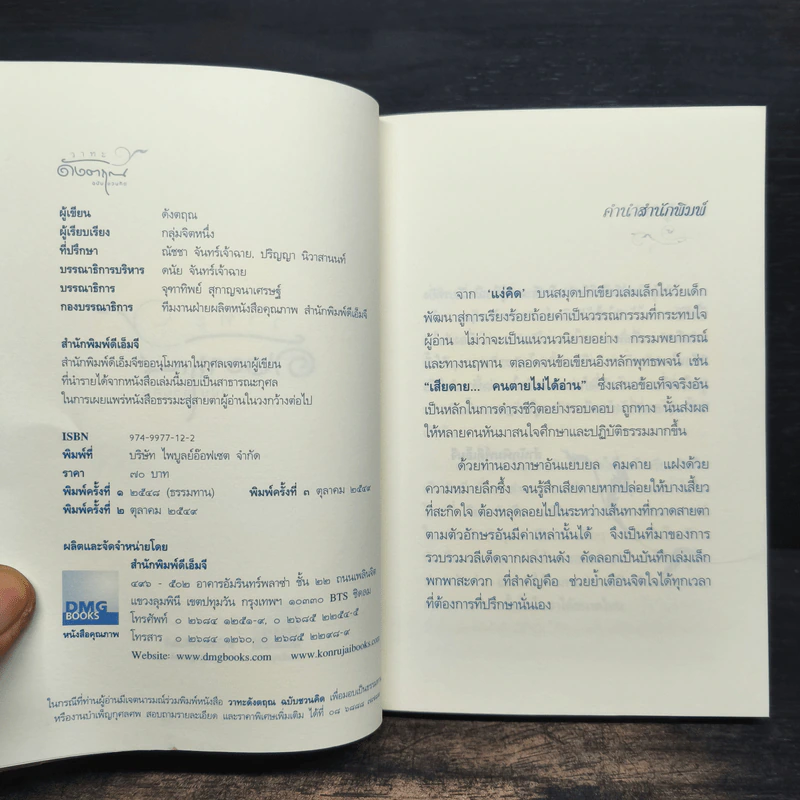 วาทะ
ดังตฤณ
ฉบับชวนคิด
ผู้เขียน ดังตฤณ
ผู้เรียบเรียง กลุ่มจิตหนึ่ง
ที่ปรึกษา ณัชชา จันทร์เจ้าฉาย, ปริญญา นิวาสานนท์
บรรณาธิการบริหาร ดนัย จันทร์เจ้าฉาย
บรรณาธิการ จุฑาทิพย์ สุกาญจนาเศรษฐ์
กองบรรณาธิการ ทีมงานฝ่ายผลิตหนังสือคุณภาพ สำนักพิมพ์ดีเอ็มจี
สำนักพิมพ์ดีเอ็มจี
สำนักพิมพ์ดีเอ็มจีขออนุโมทนาในกุศลเจตนาผู้เขียน
ที่นำรายได้จากหนังสือเล่มนี้มอบเป็นสาธารณะกุศล
ในการเผยแพร่หนังสือธรรมะสู่สายตาผู้อ่านในวงกว้างต่อไป
ISBN 974-9977-12-2
พิมพ์ที่ บริษัท ไพบูลย์อ๊อฟเซต จำกัด
ราคา ๗๐ บาท
พิมพ์ครั้งที่ ๑ ๒๕๔๘ (ธรรมทาน) พิมพ์ครั้งที่ ๓ ตุลาคม ๒๕๔๙
พิมพ์ครั้งที่ ๒ ตุลาคม ๒๕๔๙
ผลิตและจัดจำหน่ายโดย
สำนักพิมพ์ดีเอ็มจี
๔๙๖ - ๕๐๒ อาคารอัมรินทร์พลาซ่า ชั้น ๒๒ ถนนเพลินจิต
แขวงลุมพินี เขตปทุมวัน กรุงเทพฯ ๑๐๓๓๐ BTS ชิดลม
โทรศัพท์ ๐ ๒๖๘๔ ๑๒๕๑-๙, ๐ ๒๖๘๕ ๒๒๕๔-๕
โทรสาร ๐ ๒๖๘๔ ๑๒๖๐, ๐ ๒๖๘๕ ๒๒๙๘-๙
Website: www.dmgbooks.com www.konrujaibooks.com
DMG
BOOKS
หนังสือคุณภาพ
ในกรณีที่ท่านผู้อ่านมีเจตนารมณ์ร่วมพิมพ์หนังสือ วาทะดังตฤณ ฉบับชวนคิด เพื่อมอบเป็น
หรืองานบำเพ็ญกุศลศพ สอบถามรายละเอียด และราคาพิเศษเพิ่มเติม ได้ที่ ๐๘
คำนำสำนักพิมพ์
จาก 'แง่คิด' บนสมุดปกเขียวเล่มเล็กในวัยเด็ก
พัฒนาสู่การเรียงร้อยถ้อยคำเป็นวรรณกรรมที่กระทบใจ
ผู้อ่าน ไม่ว่าจะเป็นแนวนวนิยายอย่าง กรรมพยากรณ์
และทางนฤพาน ตลอดจนข้อเขียนอิงหลักพุทธพจน์ เช่น
"เสียดาย... คนตายไม่ได้อ่าน" ซึ่งเสนอข้อเท็จจริงอัน
เป็นหลักในการดำรงชีวิตอย่างรอบคอบ ถูกทาง นั้นส่งผล
ให้หลายคนหันมาสนใจศึกษาและปฏิบัติธรรมมากขึ้น
ด้วยทำนองภาษาอันแยบยล คมคาย แฝงด้วย
ความหมายลึกซึ้ง จนรู้สึกเสียดายหากปล่อยให้บางเสี้ยว
ที่สะกิดใจ ต้องหลุดลอยไปในระหว่างเส้นทางที่กวาดสายตา
ตามตัวอักษรอันมีค่าเหล่านั้นได้ จึงเป็นที่มาของการ
รวบรวมวลีเด็ดจากผลงานดัง คัดลอกเป็นบันทึกเล่มเล็ก
พกพาสะดวก ที่สำคัญคือ ช่วยย้ำเตือนจิตใจได้ทุกเวลา
ที่ต้องการที่ปรึกษานั่นเอง